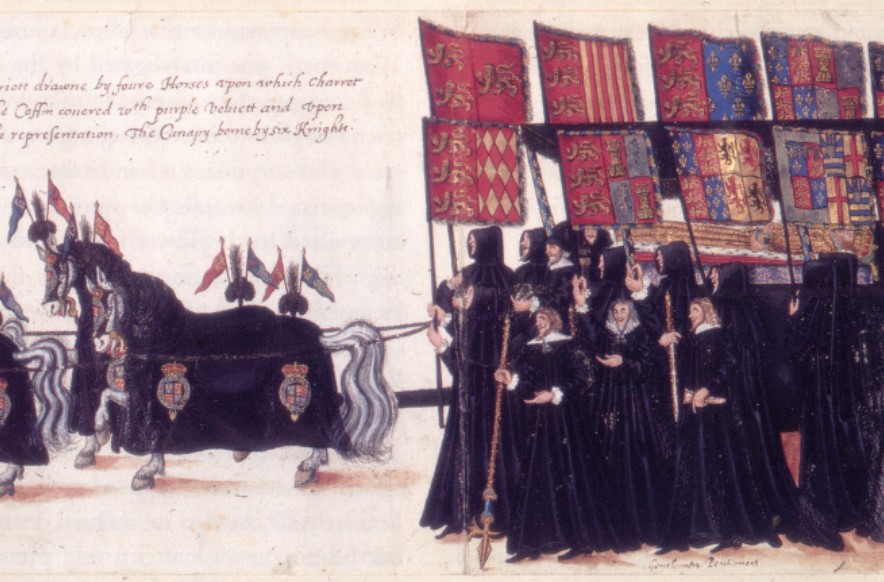 riott drawne by foure Horses vpon which Charret
e Coffin couered wth purple veluett and vpon
e representation, The Canapy borne by six Knights.
Gentlemen Pentioners